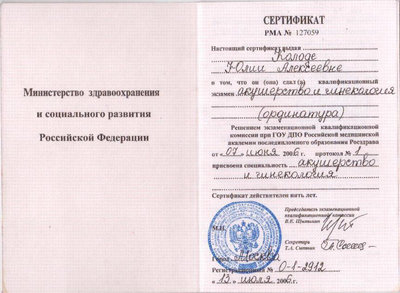 Министерство здравоохранения
и социального развития
Российской Федерации
СЕРТИФИКАТ
РМА № 127059
Настоящий сертификат выдан
Колоде
Юлии Алексеевне
в том, что он (она) сдал(а) квалификационный
экзамен акушерство и гинекология
(ординатура)
Решением экзаменационной квалификационной
комиссии при ГОУ ДПО Российской медицинской
академии последипломного образования Росздрава
от «07» июня 2006 г. протокол № 1
присвоена специальность акушерство
и гинекология
Сертификат действителен пять лет.
Председатель экзаменационной
квалификационной комиссии
М.П.
Секретарь
Город Москва
Регистрационный № 0-1-2912
«13» июля 2006 г.